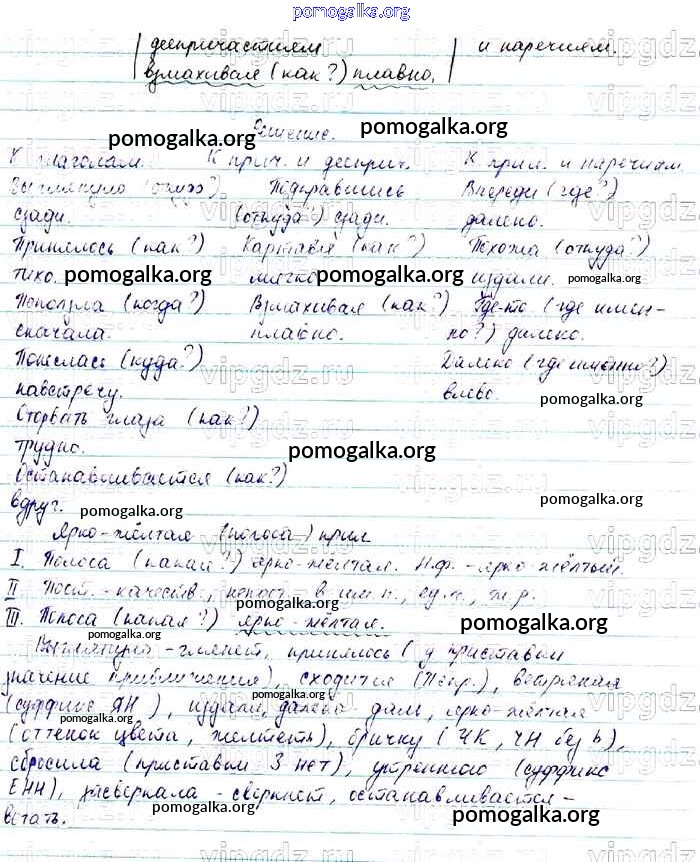 pomogalka.org
деепричастиям и наречиям.
взмахивая (как?) плавно.
pomogalka.org
Решение.
К глаголам. К прич. и дееприч. К прил. и наречиям.
Выглянуло (откуда?) Подкравшись Впереди (где?)
сзади. (откуда?) сзади. далеко.
Принялось (как?) Картавя (как?) Похожа (откуда?)
тихо. pomogalka.org мягко издали. pomogalka.org
Поползла (когда?) Взмахивая (как?) Где-то (где имен-
сначала. плавно. но?) далеко.
Понеслась (куда?) Далеко (где именно?)
навстречу. влево. pomogalka.org
Оторвать глаза (как?)
трудно. pomogalka.org
Останавливается (как?)
вдруг. pomogalka.org
Ярко-жёлтая (полоса) прил.
I. Полоса (какая?) ярко-жёлтая. Н.ф. - ярко-жёлтый.
II Пост. - качеств., непост. в им.п., ед.ч., ж.р.
III. Полоса (какая?) ярко-жёлтая. pomogalka.org
pomogalka.org
Выглянуло - глянет, принялось (у приставки
значение приближения), сходится (Непр.), ветряная
(суффикс ЯН), издали, далеко - даль, ярко-жёлтая
pomogalka.org
(оттенок цвета, желтеть), бричку (ЧК, ЧН без ь),
сбросила (приставки З нет), утреннюю (суффикс
ЕНН), засверкала - сверкнет, останавливается -
pomogalka.org pomogalka.org
встать.
vipgdz.ru